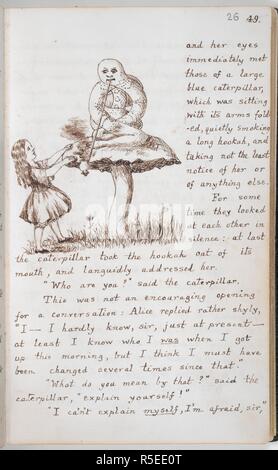 26 49.
and her eyes
immediately met
those of a large
blue caterpillar,
which was sitting
with its arms fold
-ed, quietly smoking
a long hookah, and
taking not the least
notice of her or
of anything else.
For some
time they looked
at each other in
silence: at last
the caterpillar took the hookah out of its
mouth, and languidly addressed her.
"Who are you?" said the caterpillar.
This was not an encouraging opening
for a conversation: Alice replied rather shyly,
"I— I hardly know, sir, just at present—
at least I know who I was when I got
up this morning, but I think I must have
been changed several times since that."
"What do you mean by that?" said the
caterpillar, "explain yourself!"
"I can't explain myself, I'm afraid, sir,"
alamy
Image ID: R5EE0T
www.alamy.com